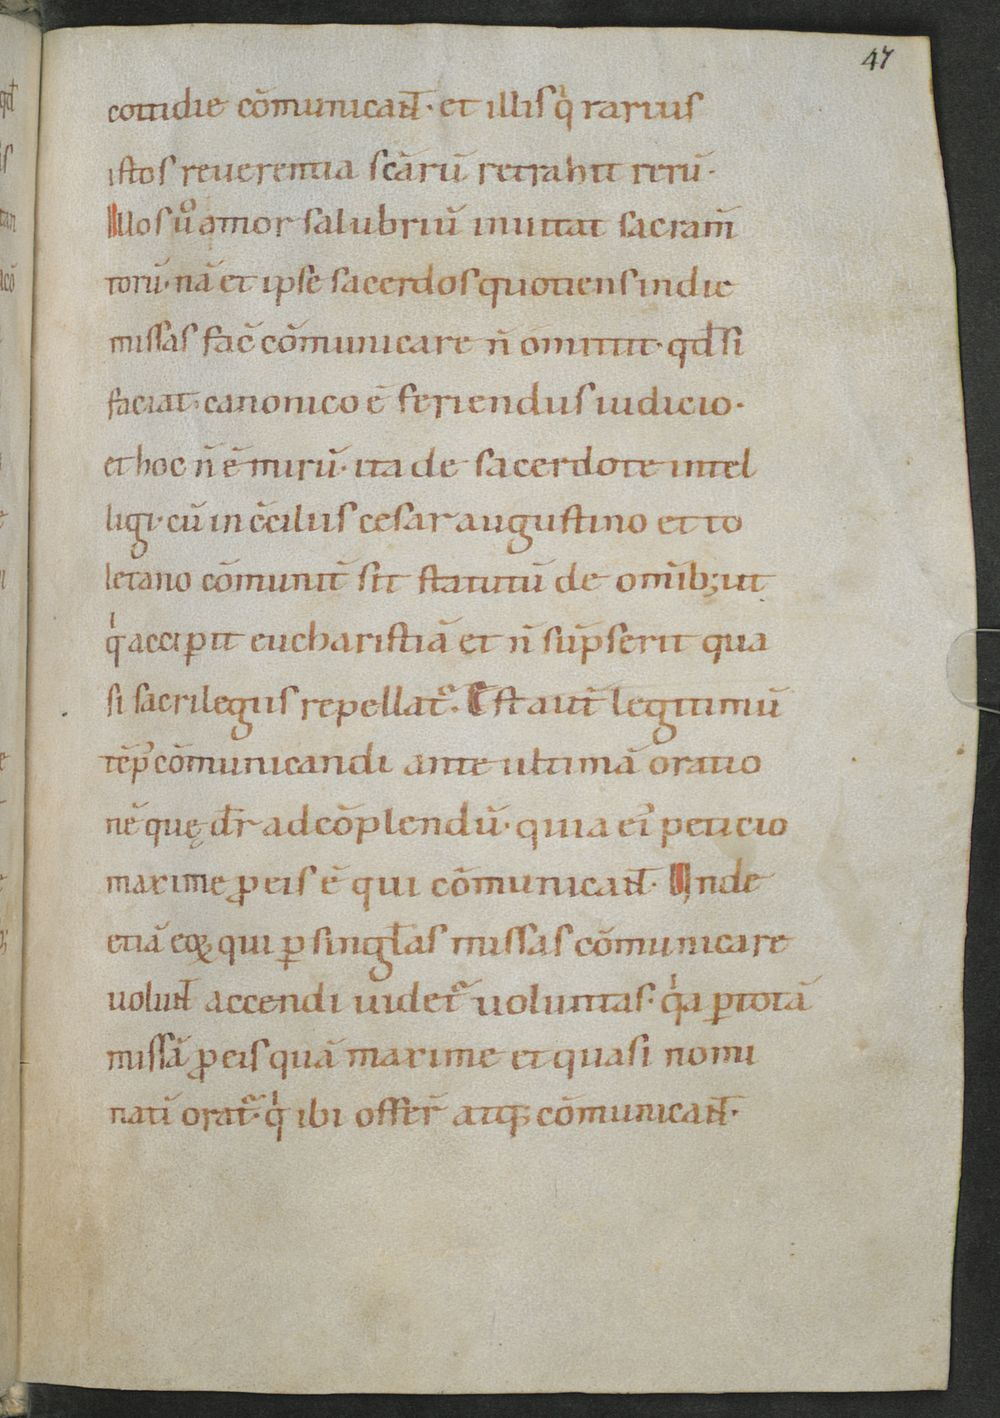 47
cottidie cōmunicant̄· et illis qͥ rarius
istos reuerentia scārū retrahit rerū·
Illos ūͦ amor salubriū inuitat sacram̄
torū· nā et ipse sacerdos quotiens in die
missas fac̄ cōmunicare n̄ omittit· qđ si
faciat· canonico ē feriendus iudicio·
et hoc n̄ ē mirū· ita de sacerdote intel
ligi· cū in c̄ciliis cesaraugustino et to
letano cōmunit̄ sit statutū de omīb; ut
qͥ accipit eucharistiā et n̄ sūpserit qua
si sacrilegus repellat᷑· Est aut̄ legitimū
tēp᷒ cōmunicandi ante ultimā oratio
nē quę dr̄ ad cōplendū· quia ei᷒ peticio
maxime ꝓ eis ē qui cōmunicant̄· Unde
etiā eoꝝ qui ꝑ singl̄as missas cōmunicare
uolunt̄ accendi uidet᷑ uoluntas· qͥa ꝑ totā
missā ꝓ eis quā maxime et quasi nomi
natī orat᷑· qͥ ibi offer̄ atqꝫ cōmunicant̄·